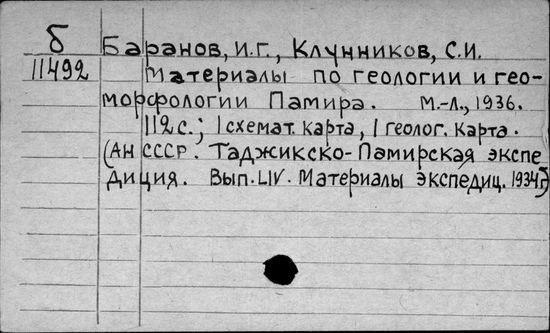 б
Баранов, И.Г., Клунников, С.И.
11492
Материалы по геологии и гео-
морфологии Памира. М.-Л., 1936.
112 с.; 1 схемат. карта, 1 геолог. карта.
(АН СССР. Таджикско-Памирская экспе
диция. Вып. LIV. Материалы экспедиц. 1934г.)